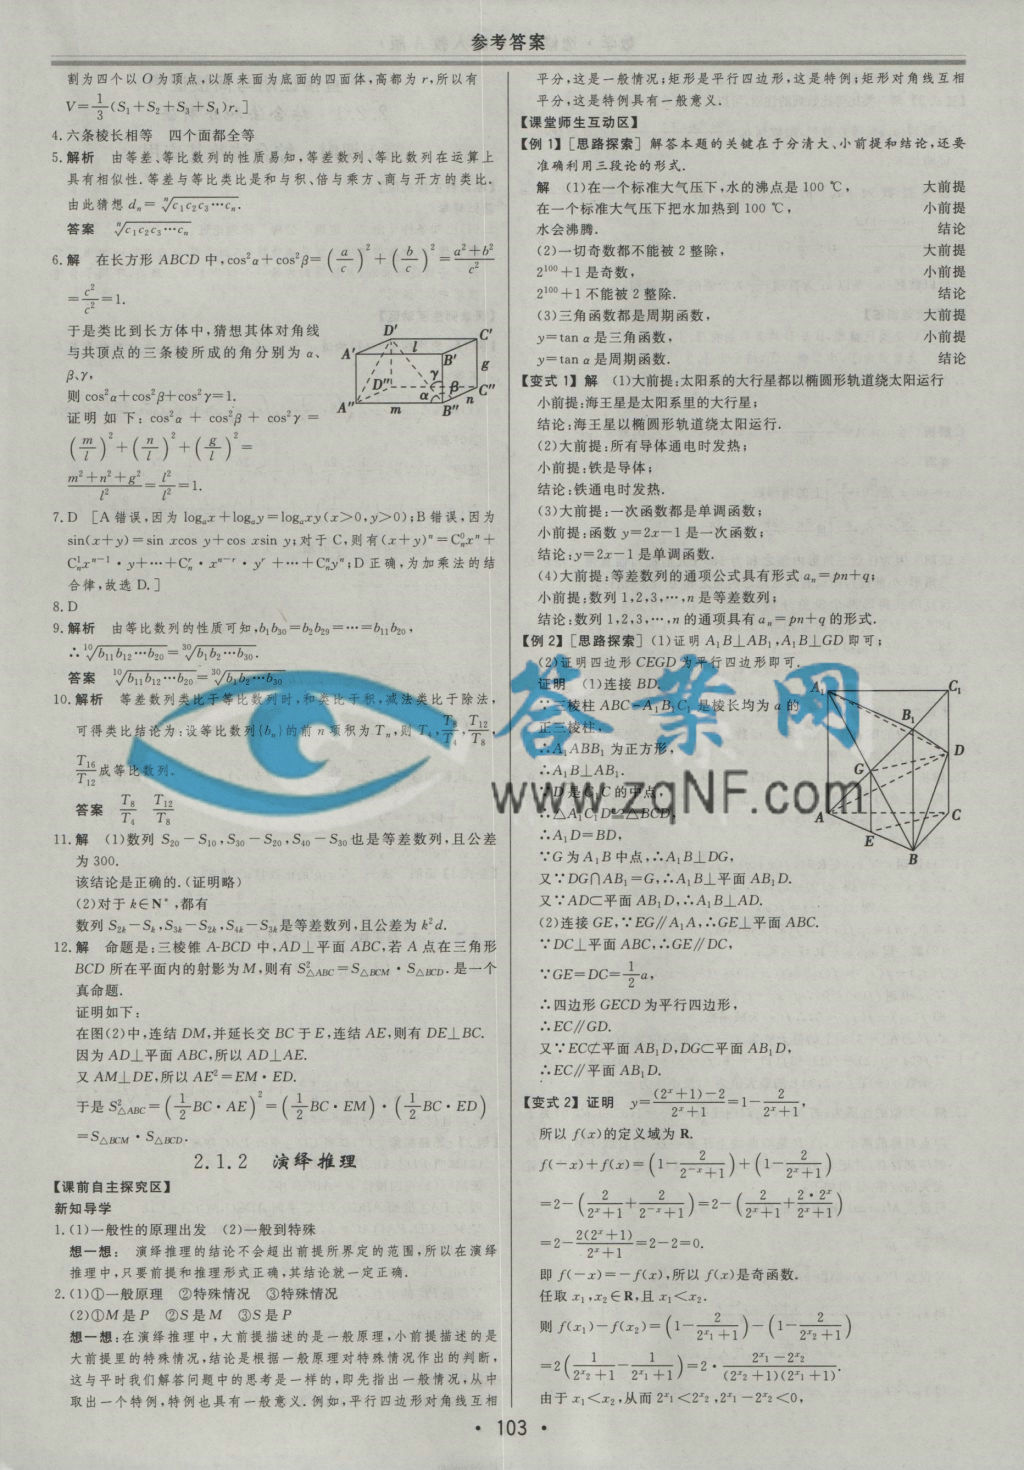 参考答案
割为四个以O为顶点,以原来面为底面的四面体,高都为r,所以有
V=1/3(S₁+S₂+S₃+S₄)r.]
4.六条棱长相等 四个面都全等
5.解析 由等差、等比数列的性质易知,等差数列、等比数列在运算上
具有相似性.等差与等比类比是和与积、倍与乘方、商与开方的类比.
由此猜想 dₙ=ⁿ√(c₁c₂c₃…cₙ).
答案 ⁿ√(c₁c₂c₃…cₙ)
6.解 在长方形ABCD中,cos²α+cos²β=(a/c)²+(b/c)²=(a²+b²)/c²
=c²/c²=1.
于是类比到长方体中,猜想其体对角线
与共顶点的三条棱所成的角分别为α、
β、γ,
则cos²α+cos²β+cos²γ=1.
证明如下:cos²α+cos²β+cos²γ=
(m/l)²+(n/l)²+(g/l)²=
(m²+n²+g²)/l²=l²/l²=1.
D′ C′ A′ l B′ g γ D″ β C″ α n A″ m B″
7.D [A错误,因为logₐx+logₐy=logₐxy(x>0,y>0);B错误,因为
sin(x+y)=sin xcos y+cos xsin y;对于C,则有(x+y)ⁿ=C⁰ₙxⁿ+
C¹ₙxⁿ⁻¹·y+…+Cʳₙ·xⁿ⁻ʳ·yʳ+…+Cⁿₙyⁿ;D正确,为加乘法的结
合律,故选D.]
8.D
9.解析 由等比数列的性质可知,b₁b₃₀=b₂b₂₉=…=b₁₁b₂₀,
∴¹⁰√(b₁₁b₁₂…b₂₀)=³⁰√(b₁b₂…b₃₀).
答案 ¹⁰√(b₁₁b₁₂…b₂₀)=³⁰√(b₁b₂…b₃₀)
10.解析 等差数列类比于等比数列时,和类比于积,减法类比于除法,
可得类比结论为:设等比数列{bₙ}的前n项积为Tₙ,则T₄,T₈/T₄,T₁₂/T₈,
T₁₆/T₁₂成等比数列.
答案 T₈/T₄ T₁₂/T₈
11.解 (1)数列S₂₀-S₁₀,S₃₀-S₂₀,S₄₀-S₃₀也是等差数列,且公差
为300.
该结论是正确的.(证明略)
(2)对于k∈N*,都有
数列S₂ₖ-Sₖ,S₃ₖ-S₂ₖ,S₄ₖ-S₃ₖ是等差数列,且公差为k²d.
12.解 命题是:三棱锥A-BCD中,AD⊥平面ABC,若A点在三角形
BCD所在平面内的射影为M,则有S²△ABC=S△BCM·S△BCD.是一个
真命题.
证明如下:
在图(2)中,连结DM,并延长交BC于E,连结AE,则有DE⊥BC.
因为AD⊥平面ABC,所以AD⊥AE.
又AM⊥DE,所以AE²=EM·ED.
于是S²△ABC=(1/2BC·AE)²=(1/2BC·EM)·(1/2BC·ED)
=S△BCM·S△BCD.
2.1.2 演绎推理
【课前自主探究区】
新知导学
1.(1)一般性的原理出发 (2)一般到特殊
想一想: 演绎推理的结论不会超出前提所界定的范围,所以在演绎
推理中,只要前提和推理形式正确,其结论就一定正确.
2.(1)①一般原理 ②特殊情况 ③特殊情况
(2)①M是P ②S是M ③S是P
想一想:在演绎推理中,大前提描述的是一般原理,小前提描述的是
大前提里的特殊情况,结论是根据一般原理对特殊情况作出的判断,
这与平时我们解答问题中的思考是一样的,即先指出一般情况,从中
取出一个特例,特例也具有一般意义.例如,平行四边形对角线互相
平分,这是一般情况;矩形是平行四边形,这是特例;矩形对角线互相
平分,这是特例具有一般意义.
【课堂师生互动区】
【例1】[思路探索] 解答本题的关键在于分清大、小前提和结论,还要
准确利用三段论的形式.
解 (1)在一个标准大气压下,水的沸点是100 ℃, 大前提
在一个标准大气压下把水加热到100 ℃, 小前提
水会沸腾. 结论
(2)一切奇数都不能被2整除, 大前提
2¹⁰⁰+1是奇数, 小前提
2¹⁰⁰+1不能被2整除. 结论
(3)三角函数都是周期函数, 大前提
y=tan α是三角函数, 小前提
y=tan α是周期函数. 结论
【变式1】解 (1)大前提:太阳系的大行星都以椭圆形轨道绕太阳运行
小前提:海王星是太阳系里的大行星;
结论:海王星以椭圆形轨道绕太阳运行.
(2)大前提:所有导体通电时发热;
小前提:铁是导体;
结论:铁通电时发热.
(3)大前提:一次函数都是单调函数;
小前提:函数y=2x-1是一次函数;
结论:y=2x-1是单调函数.
(4)大前提:等差数列的通项公式具有形式aₙ=pn+q;
小前提:数列1,2,3,…,n是等差数列;
结论:数列1,2,3,…,n的通项具有aₙ=pn+q的形式.
【例2】[思路探索] (1)证明A₁B⊥AB₁,A₁B⊥GD即可;
(2)证明四边形CEGD为平行四边形即可.
证明 (1)连接BD.
∵三棱柱ABC-A₁B₁C₁是棱长均为a的
正三棱柱,
∴A₁ABB₁为正方形,
∴A₁B⊥AB₁.
∵D是C₁C的中点,
∴△A₁C₁D≌△BCD,
∴A₁D=BD,
∵G为A₁B中点,∴A₁B⊥DG,
又∵DG∩AB₁=G,∴A₁B⊥平面AB₁D.
又∵AD⊂平面AB₁D,∴A₁B⊥AD.
(2)连接GE,∵EG∥A₁A,∴GE⊥平面ABC.
∵DC⊥平面ABC,∴GE∥DC,
∵GE=DC=1/2a,
∴四边形GECD为平行四边形,
∴EC∥GD.
又∵EC⊄平面AB₁D,DG⊂平面AB₁D,
∴EC∥平面AB₁D.
A₁ C₁ B₁ D G A C E B
【变式2】证明 y=((2ˣ+1)-2)/(2ˣ+1)=1-2/(2ˣ+1),
所以f(x)的定义域为R.
f(-x)+f(x)=(1-2/(2⁻ˣ+1))+(1-2/(2ˣ+1))
=2-(2/(2ˣ+1)+2/(2⁻ˣ+1))=2-(2/(2ˣ+1)+2·2ˣ/(2ˣ+1))
=2-2(2ˣ+1)/(2ˣ+1)=2-2=0.
即f(-x)=-f(x),所以f(x)是奇函数.
任取x₁,x₂∈R,且x₁<x₂.
则f(x₁)-f(x₂)=(1-2/(2^x₁+1))-(1-2/(2^x₂+1))
=2(1/(2^x₂+1)-1/(2^x₁+1))=2·(2^x₁-2^x₂)/((2^x₂+1)(2^x₁+1)).
由于x₁<x₂,从而2^x₁<2^x₂,2^x₁-2^x₂<0,
答案网
www.zqNF.com
· 103 ·